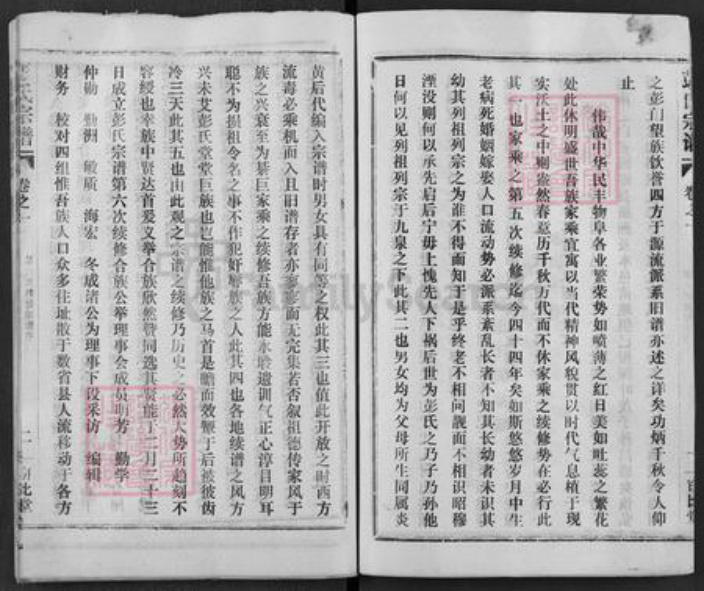 之彭门望族饮誉四方于源流派系旧谱亦述之详矣功炳千秋令人仰
止
伟哉中华民丰物阜各业繁荣势如喷薄之红日美如吐蕊之繁花
处此休明盛世吾族家乘宜寓以当代精神风貌贯以时代气息植于现
实沃土之中则盎然春意历千秋万代而不休家乘之续修势在必行此
其一也家乘之第五次续修迄今四十四年矣如斯悠悠岁月中生
老病死婚姻嫁娶人口流动势必派系紊乱长者不知其长幼者未识其
幼其列祖列宗之为谁不得而知于是乎终老不相问觌面不相识昭穆
湮没则何以承先启后宁毋上愧先人下祸后世为彭氏之乃子乃孙他
日何以见列祖列宗于九泉之下此其二也男女均为父母所生同属炎
黄后代编入宗谱时男女具有同等之权此其三也值此开放之时西方
流毒必乘机而入且旧谱存者亦寥寥而无完集若否叙祖德传家风于
族之兴衰至为綦巨家乘之续修吾族方能永聆遗训气正心淳目明耳
聪不为损祖令名之事不作犯奸辱族之人此其四也各地续谱之风方
兴未艾彭氏堂堂巨族也岂能惟他族之马首是瞻而效颦于后候彼齿
冷三天此其五也由此观之宗谱之续修乃历史之必然大势所趋刻不
容缓也幸族中贤达首爱义举合族欣然赞同选其贤能于二月二十三
日成立彭氏宗谱第六次续修合族公举理事会成员明芳 勤学
仲勋 勋洲 敏质 海宏 冬成诸公为理事下设采访 编辑
财务 校对四组惟吾族人口众多住址散于数省县人流移动于各方
氏宗谱 卷之一
二